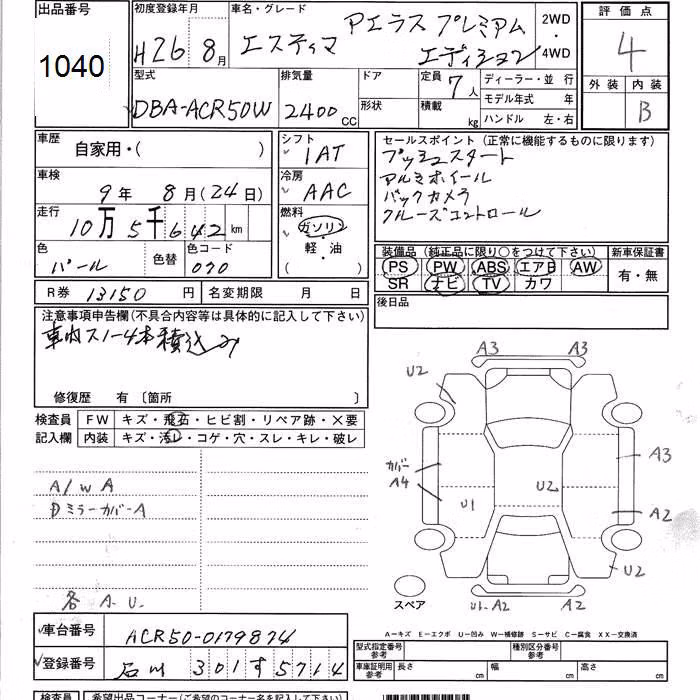 出品番号 初度登録年月 車名・グレード 2WD・4WD 評価点
1040 H26 8月 エスティマ アエラス プレミアム エディション 4
型式 排気量 ドア 定員 7人 ディーラー・並行 外装 内装
DBA-ACR50W 2400CC 形状 積載 kg モデル年式 年 B
ハンドル 左・右
車歴 自家用・( ) シフト 1AT セールスポイント (正常に機能するものに限ります)
プッシュスタート
アルミホイール
バックカメラ
クルーズコントロール
車検 9年 8月(24日) 冷房 AAC
走行 10万5千642km 燃料 ガソリン 軽・油 ( )
色 パール 色替 色コード 070
装備品 (純正品に限り○をつけて下さい) 新車保証書
PS PW ABS エアB AW 有・無
SR ナビ TV カワ
R券 13150円 名変期限 月 日 後日品
注意事項申告欄(不具合内容等は具体的に記入して下さい)
車内スノー4本積込み
修復歴 有 〔箇所 〕
検査員記入欄 FW キズ・飛石・ヒビ割・リペア跡・×要
内装 キズ・汚レ・コゲ・穴・スレ・キレ・破レ
A/W A
DミラーカバーA
各 A.U.
A3 A3
U2
カバー A4 A3
U1 U2 A2
U2
スペア U1.A2 A2
A-キズ E-エクボ U-凹み W-補修跡 S-サビ C-腐食 XX-交換済
車台番号 ACR50-0179874
登録番号 石川 301 す 5714
型式指定番号 参考 種別区分番号 参考
車庫証明用 参考 長さ cm 幅 cm 高さ cm
検査員 希望出品コーナー(ご希望のコーナー名を記入して下さい)